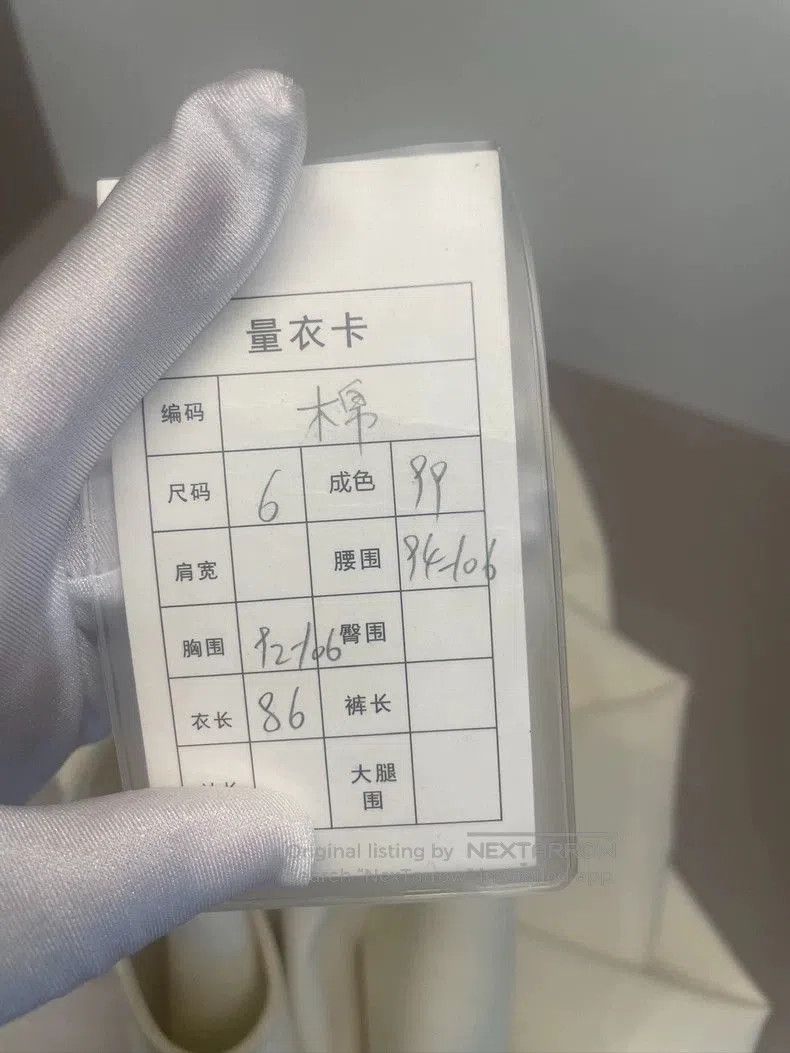 量衣卡
编码 棉
尺码 6 成色 99
肩宽 腰围 94-106
胸围 92-106 臀围
衣长 86 裤长
大腿围
Original listing by NEXTARROW